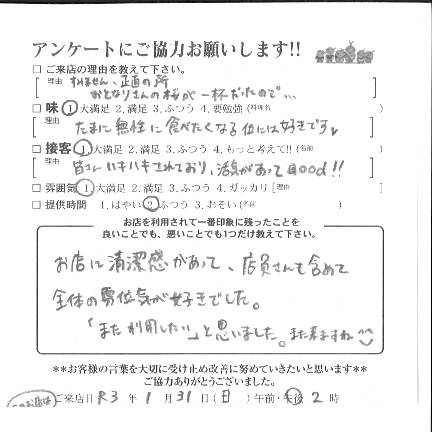 アンケートにご協力お願いします!!
□ ご来店の理由を教えて下さい。
理由 すみません、正直の所
おとなりさんの桜が一杯だったので…
□ 味 1.大満足 2.満足 3.ふつう 4.要勉強(料理名 )
理由 たまに無性に食べたくなる位には好きです
□ 接客 1.大満足 2.満足 3.ふつう 4.もっと考えて!!(名前 )
理由 皆さんハキハキされており、活気があってGood!!
□ 雰囲気 1.大満足 2.満足 3.ふつう 4.ガッカリ[理由 ]
□ 提供時間 1.はやい 2.ふつう 3.おそい(名前 )
お店を利用されて一番印象に残ったことを
良いことでも、悪いことでも1つだけ教えて下さい。
お店に清潔感があって、店員さんも含めて
全体の雰位気が好きでした。
「また利用したい」と思いました。また来ますね
**お客様の言葉を大切に受け止め改善に努めていきたいと思います**
ご協力ありがとうございました。
ご来店日 R3 年 1 月 31 日 (日) 午前・午後 2 時